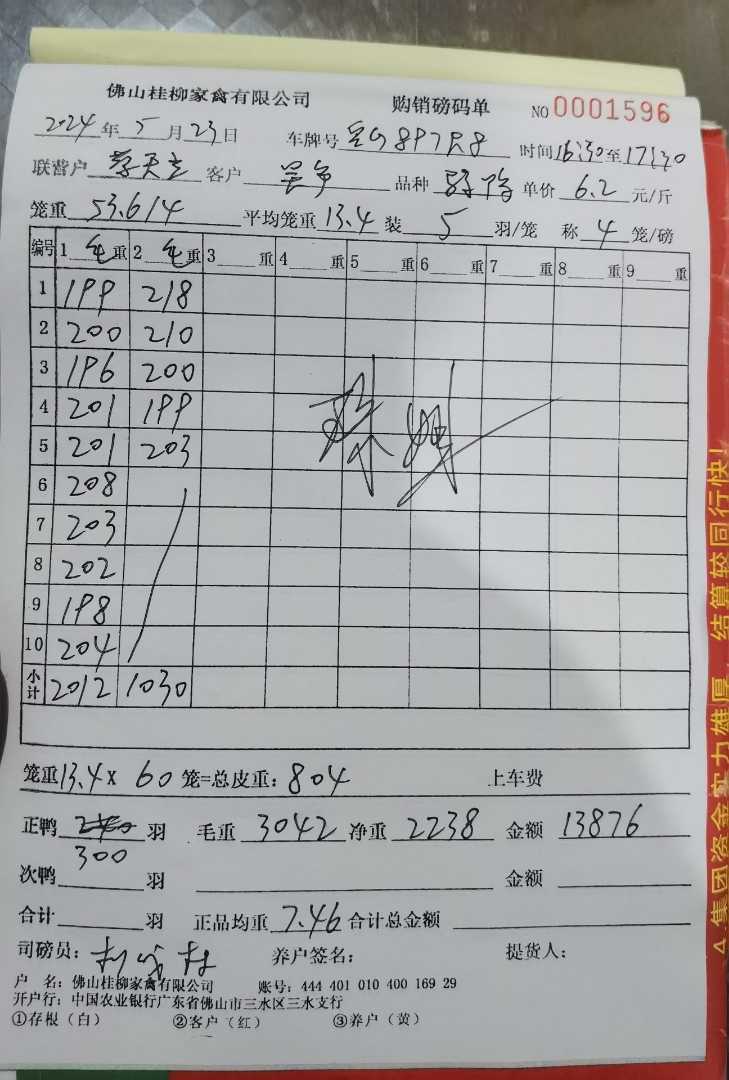 佛山桂柳家禽有限公司 购销磅码单 NO 0001596
2024年5月23日 车牌号 时间16:30至17:30
联营户 客户 品种 单价 6.2 元/斤
笼重 53.6/4 平均笼重 13.4 装 5 羽/笼 称 4 笼/磅
编号 1 毛重 2 毛重 3 重 4 重 5 重 6 重 7 重 8 重 9 重
1 199 218
2 200 210
3 196 200
4 201 199
5 201 203
6 208
7 203
8 202
9 198
10 204
小计 2012 1030
笼重13.4× 60 笼=总皮重: 804 上车费
正鸭 羽 毛重 3042 净重 2238 金额 13876
300
次鸭 羽 金额
合计 羽 正品均重 7.46 合计总金额
司磅员: 养户签名: 提货人:
户 名: 佛山桂柳家禽有限公司 账号: 444 401 010 400 169 29
开户行: 中国农业银行广东省佛山市三水区三水支行
①存根(白) ②客户(红) ③养户(黄)
集团资金实力雄厚,结算较同行快!